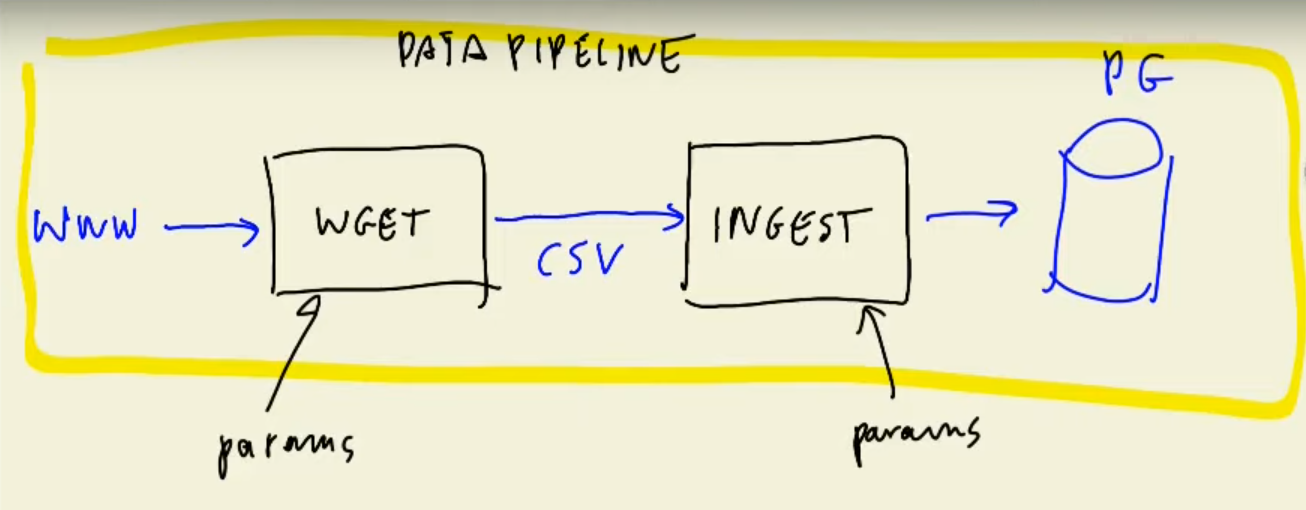 DATA PIPELINE
PG
WWW
WGET
CSV
INGEST
params
params